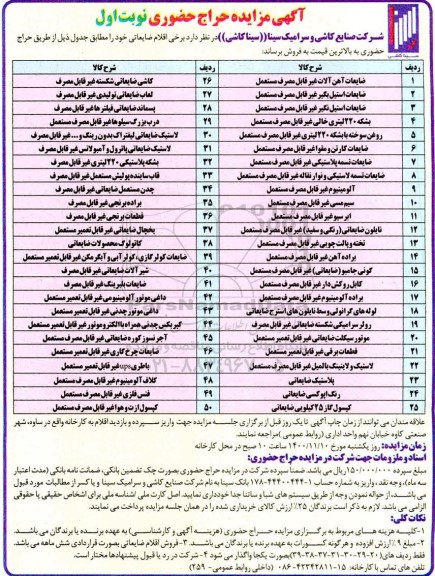 آگهی مزایده حراج حضوری نوبت اول
شرکت صنایع کاشی و سرامیک سینا ((سیناکاشی)) در نظر دارد برخی اقلام ضایعاتی خود را مطابق جدول ذیل از طریق حراج
حضوری به بالاترین قیمت به فروش برساند:
ردیف شرح کالا ردیف شرح کالا
۱ ضایعات آهن آلات غیر قابل مصرف مستعمل ۲۶ کاشی ضایعاتی شکسته غیر قابل مصرف
۲ ضایعات استیل بگیر غیر قابل مصرف مستعمل ۲۷ لعاب ضایعاتی تولیدی غیر قابل مصرف
۳ ضایعات استیل نگیر غیر قابل مصرف مستعمل ۲۸ پسماند ضایعاتی فیلترها غیر قابل مصرف
۴ بشکه ۲۲۰ لیتری خالی غیر قابل مصرف مستعمل ۲۹ درب بزرگ سیلوها غیر قابل مصرف مستعمل
۵ روغن سوخته با بشکه ۲۲۰ لیتری غیر قابل مصرف ۳۰ لاستیک ضایعاتی لیفتراک بدون رینگ و... غیر قابل مصرف
۶ ضایعات کارتن و مقوا غیر قابل مصرف مستعمل ۳۱ لاستیک ضایعاتی پاترول و آمبولانس غیر قابل مصرف
۷ ضایعات تسمه پلاستیکی غیر قابل مصرف مستعمل ۳۲ بشکه پلاستیکی ۲۲۰ لیتری غیر قابل مصرف
۸ ضایعات تسمه لاستیکی و نوار نقاله غیر قابل مصرف ۳۳ قاب ساینده پولیش مستعمل غیر قابل مصرف
۹ آلومینیوم غیر قابل مصرف مستعمل ۳۴ چدن مستعمل ضایعاتی غیر قابل مصرف
۱۰ سیم مسی غیر قابل مصرف مستعمل ۳۵ براده برنجی غیر قابل مصرف
۱۱ ایرسیو غیر قابل مصرف مستعمل ۳۶ قطعات برنجی غیر قابل مصرف
۱۲ نایلون ضایعاتی (رنگی و سفید) غیر قابل مصرف مستعمل ۳۷ یخچال ضایعاتی غیر قابل تعمیر مستعمل
۱۳ تخته و پالت چوبی غیر قابل مصرف مستعمل ۳۸ کاتولوگ محصولات ضایعاتی
۱۴ براده آهن غیر قابل مصرف مستعمل ۳۹ ضایعات کولر گازی، کولر آبی و آبگرمکن غیر قابل تعمیر مستعمل
۱۵ گونی جامبو (ضایعاتی) غیر قابل مصرف مستعمل ۴۰ شیر آلات ضایعاتی غیر قابل مصرف
۱۶ کابل روکش دار غیر قابل مصرف مستعمل ۴۱ ضایعات بلبرینگ غیر قابل مصرف
۱۷ براده آلومینیوم غیر قابل مصرف مستعمل ۴۲ داغی موتور آلومینیومی غیر قابل تعمیر مستعمل
۱۸ لوله های گرانولی وسط نایلون های استرچ ضایعاتی ۴۳ داغی موتور چدنی غیر قابل تعمیر مستعمل
۱۹ رولر سرامیکی شکسته ضایعاتی غیر قابل مصرف ۴۴ گیربکس چدنی همراه با الکتروموتور غیر قابل تعمیر مستعمل
۲۰ موتور سیکلت ضایعاتی غیر قابل تعمیر مستعمل ۴۵ آجر نسوز کوره ضایعاتی غیر قابل مصرف
۲۱ قطعات برقی غیر قابل تعمیر مستعمل ۴۶ ضایعات چرخ گاری غیر قابل تعمیر مستعمل
۲۲ لاستیک و لاینینگ بالمیل غیر قابل مصرف مستعمل ۴۷ باطری ups غیر قابل تعمیر مستعمل
۲۳ پلاستیک ضایعاتی ۴۸ کلاف آلومینیوم غیر قابل مصرف
۲۴ رنگ اپوکسی ضایعاتی ۴۹ فنس فلزی غیر قابل مصرف
۲۵ کپسول گاز ۲۵ کیلویی ضایعاتی ۵۰ کپسول ازت و هوا غیر قابل مصرف
علاقه مندان می توانند از زمان چاپ آگهی تا یک روز قبل از برگزاری جلسه مزایده جهت واریز سپرده و بازدید اقلام به کارخانه واقع در ساوه، شهر
صنعتی کاوه خیابان نهم واحد اداری (روابط عمومی) مراجعه نمایند.
زمان مزایده: روز یکشنبه مورخ ۱۴۰۰/۱۱/۱۰ ساعت ۱۰ صبح در محل کارخانه
اسناد و ملزومات جهت شرکت در مزایده حراج حضوری:
مبلغ سپرده ۱۵۰/۰۰۰/۰۰۰ ریال می باشد. ضمنا سپرده شرکت در مزایده حراج حضوری بصورت چک تضمین بانکی، ضمانت نامه بانکی (مدت اعتبار
سه ماه)، وجه نقد، واریز به شماره حساب ۱-۴۴۴۰۰۴۴۴-۱۷۸ بانک سینا به نام شرکت صنایع کاشی و سرامیک سینا و یا کسر از مطالبات مورد قبول
می باشد، از حواله نمودن وجه از طریق سیستم های شبا و ساتنا جدا خودداری نمایید. اصل کارت ملی /شناسه ملی برای اشخاص حقیقی یا حقوقی
الزامی می باشد. لازم به ذکر است برندگان ۲۵٪ ارزش کالای خریداری شده را در همان جلسه مزایده پرداخت می نمایند.
نکات کلی:
۱-کلیه هزینه های مربوط به برگزاری مزایده حراج حضوری (هزینه آگهی و کارشناسی) به عهده برنده یا برندگان می باشد.
۲-مبلغ ۹٪ ارزش افزوده و هر گونه کسورات به عهده برنده یا برندگان می باشد. ۳-فروش اقلام ضایعاتی بصورت قراردادی شش ماهه می باشد.
تلفن های تماس با کارخانه: ۱۵-۴۲۳۴۲۸۱۱-۰۸۶ (داخلی روابط عمومی- ۲۵۹)